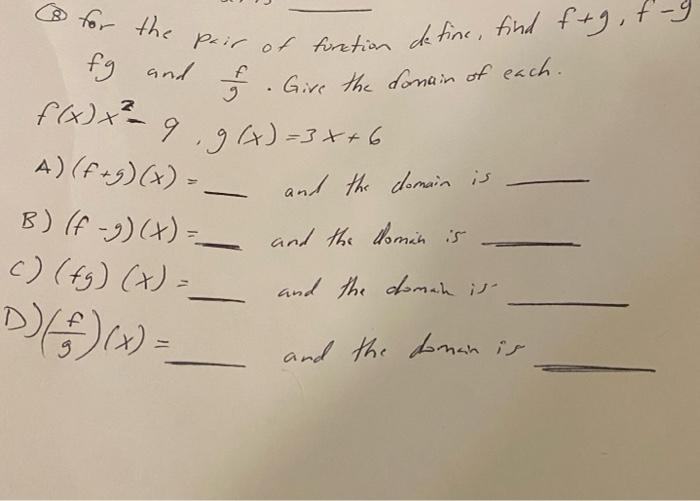 ⑧ for the pair of function define, find f+g, f-g
fg and f/g. Give the domain of each.
f(x)x²- 9, g(x)=3x+6
A) (f+g)(x) = __ and the domain is __
B) (f-g)(x) = __ and the domain is __
C) (fg)(x) = __ and the domain is __
D) (f/g)(x) = __ and the domain is __